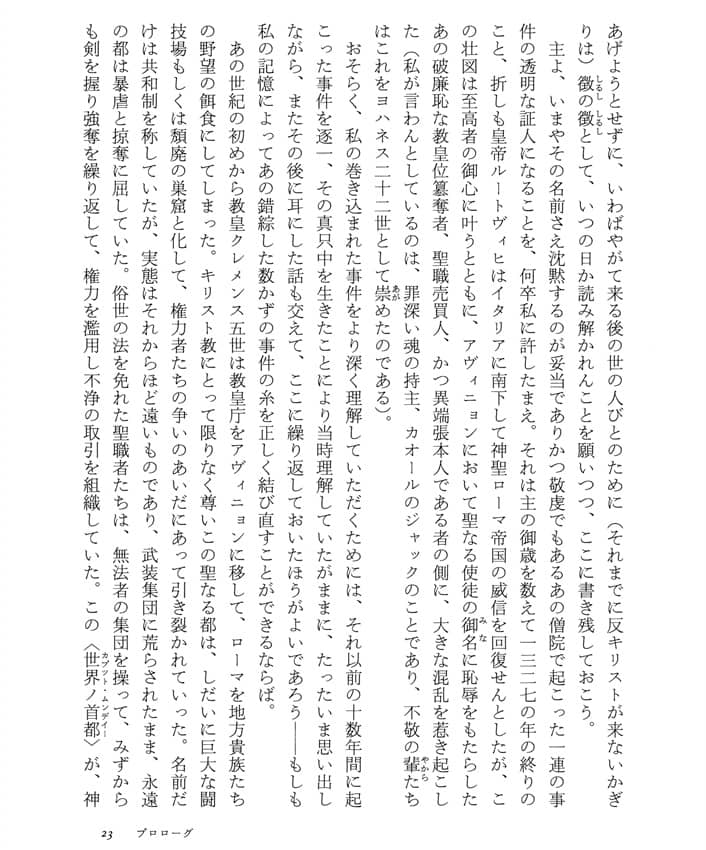 あげようとせずに、いわばやがて来る後の世の人びとのために（それまでに反キリストが来ないかぎ
りは）徴の徴として、いつの日か読み解かれんことを願いつつ、ここに書き残しておこう。
主よ、いまやその名前さえ沈黙するのが妥当でありかつ敬虔でもあるあの僧院で起こった一連の事
件の透明な証人になることを、何卒私に許したまえ。それは主の御歳を数えて一三二七の年の終りの
こと、折しも皇帝ルートヴィヒはイタリアに南下して神聖ローマ帝国の威信を回復せんとしたが、こ
の壮図は至高者の御心に叶うとともに、アヴィニョンにおいて聖なる使徒の御名に恥辱をもたらした
あの破廉恥な教皇位簒奪者、聖職売買人、かつ異端張本人である者の側に、大きな混乱を惹き起こし
た（私が言わんとしているのは、罪深い魂の持主、カオールのジャックのことであり、不敬の輩たち
はこれをヨハネス二十二世として崇めたのである）。
おそらく、私の巻き込まれた事件をより深く理解していただくためには、それ以前の十数年間に起
こった事件を逐一、その真只中を生きたことにより当時理解していたがままに、たったいま思い出し
ながら、またその後に耳にした話も交えて、ここに繰り返しておいたほうがよいであろう――もしも
私の記憶によってあの錯綜した数かずの事件の糸を正しく結び直すことができるならば。
あの世紀の初めから教皇クレメンス五世は教皇庁をアヴィニョンに移して、ローマを地方貴族たち
の野望の餌食にしてしまった。キリスト教にとって限りなく尊いこの聖なる都は、しだいに巨大な闘
技場もしくは頽廃の巣窟と化して、権力者たちの争いのあいだにあって引き裂かれていった。名前だ
けは共和制を称していたが、実態はそれからほど遠いものであり、武装集団に荒らされたまま、永遠
の都は暴虐と掠奪に屈していた。俗世の法を免れた聖職者たちは、無法者の集団を操って、みずから
も剣を握り強奪を繰り返して、権力を濫用し不浄の取引を組織していた。この〈世界ノ首都〉が、神
しるし しるし
みな
やから
あが
カプット・ムンデイー
23 プロローグ